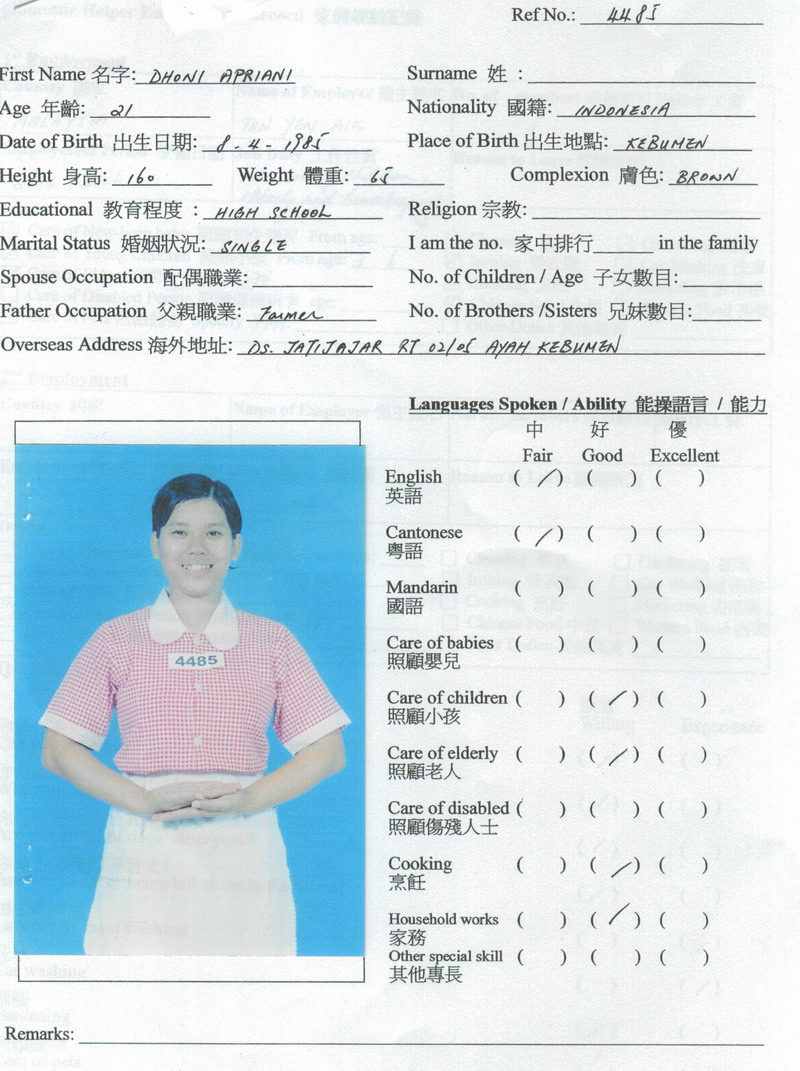 Ref No.: 4485
First Name 名字: DHONI APRIANI
Surname 姓 :
Age 年齡: 21
Nationality 國籍: INDONESIA
Date of Birth 出生日期: 8-4-1985
Place of Birth 出生地點: KEBUMEN
Height 身高: 160 Weight 體重: 65 Complexion 膚色: BROWN
Educational 教育程度 : HIGH SCHOOL
Religion 宗教:
Marital Status 婚姻狀況: SINGLE
I am the no. 家中排行 in the family
Spouse Occupation 配偶職業:
No. of Children / Age 子女數目:
Father Occupation 父親職業: Farmer
No. of Brothers /Sisters 兄妹數目:
Overseas Address 海外地址: DS. JATIJAJAR RT 02/05 AYAH KEBUMEN
Languages Spoken / Ability 能操語言 / 能力
中 好 優
Fair Good Excellent
English ( / ) ( ) ( )
英語
Cantonese ( / ) ( ) ( )
粵語
Mandarin ( ) ( ) ( )
國語
Care of babies ( ) ( ) ( )
照顧嬰兒
Care of children ( ) ( / ) ( )
照顧小孩
Care of elderly ( ) ( / ) ( )
照顧老人
Care of disabled ( ) ( ) ( )
照顧傷殘人士
Cooking ( ) ( / ) ( )
烹飪
Household works ( ) ( / ) ( )
家務
Other special skill ( ) ( ) ( )
其他專長
4485
Remarks: